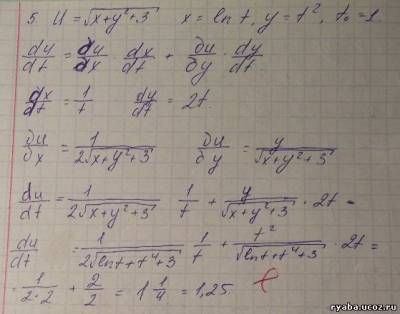 5. U = √(x+y²+3)   x = ln t, y = t², t₀ = 1.
du/dt = ∂u/∂x · dx/dt + ∂u/∂y · dy/dt.
dx/dt = 1/t   dy/dt = 2t
∂u/∂x = 1/(2√(x+y²+3))   ∂u/∂y = y/√(x+y²+3)
du/dt = 1/(2√(x+y²+3)) 1/t + y/√(x+y²+3) · 2t =
du/dt = 1/(2√(ln t+t⁴+3)) 1/t + t²/√(ln t+t⁴+3) · 2t =
= 1/(2·2) + 2/2 = 1 1/4 = 1,25.
ryaba.ucoz.ru